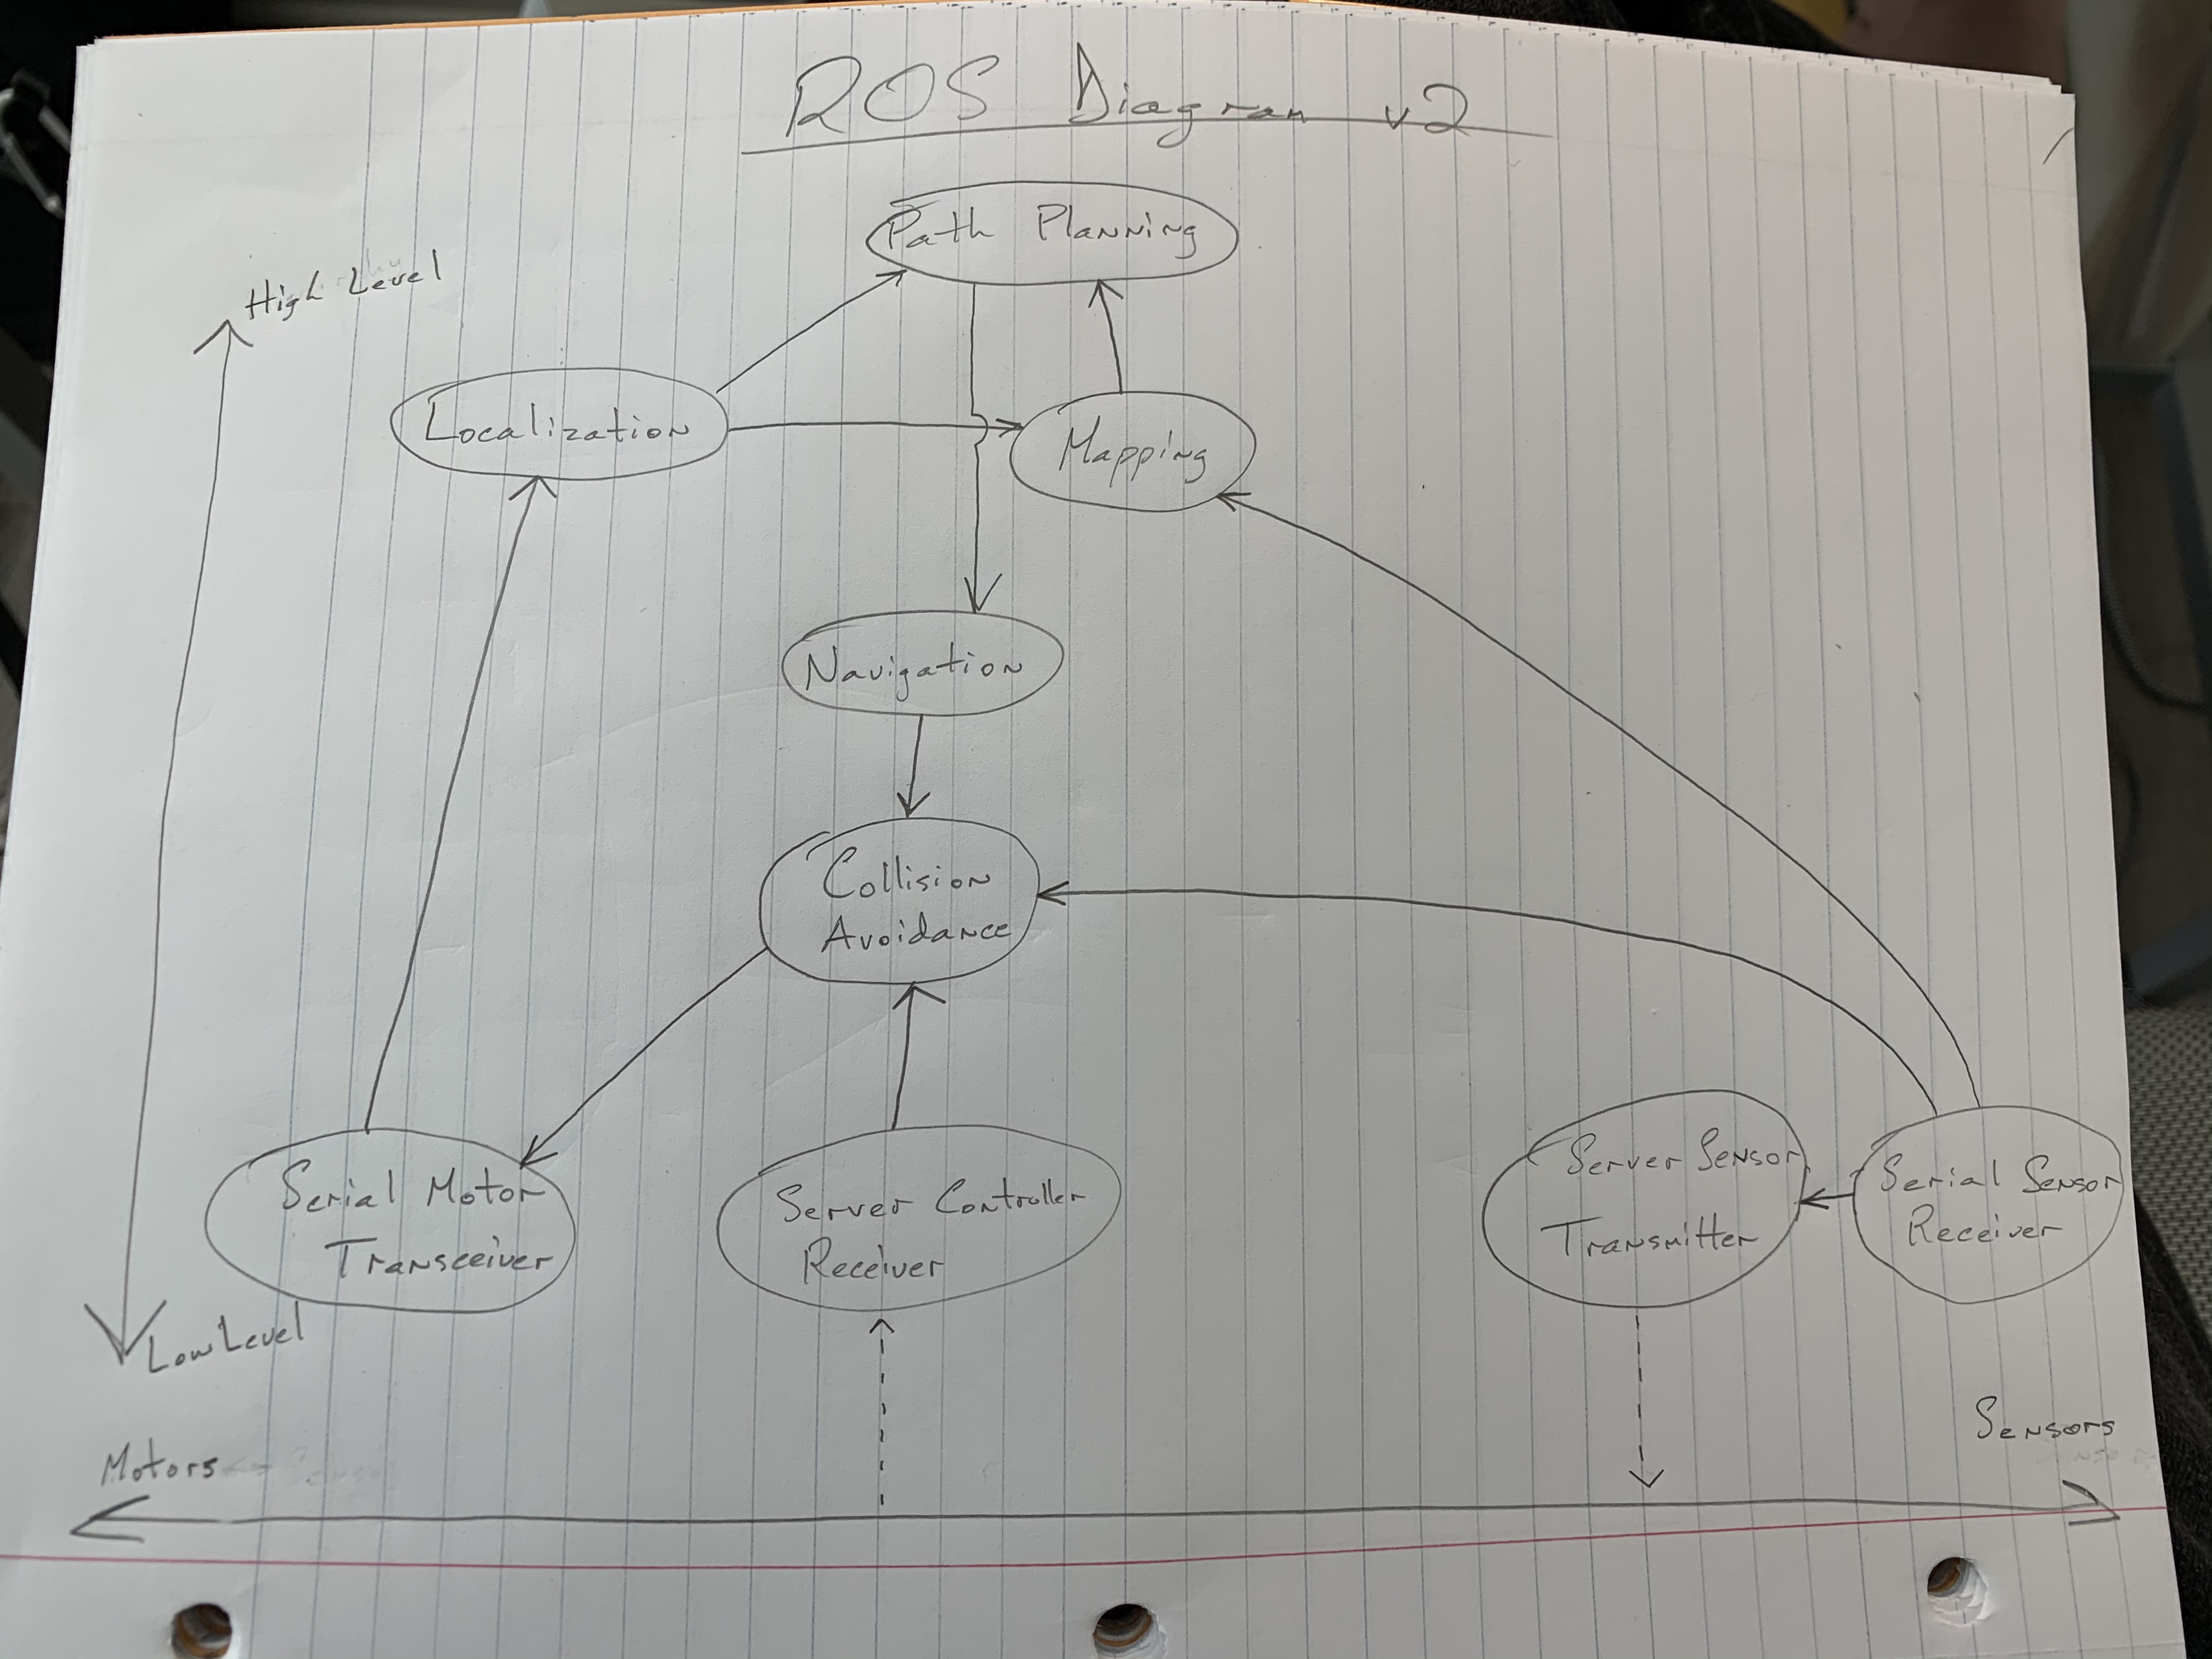 ROS Diagram v2
High-Level
Path Planning
Localization
Mapping
Navigation
Collision
Avoidance
Serial Motor
Transceiver
Server Controller
Receiver
Server Sensor
Transmitter
Serial Sensor
Receiver
Low Level
Motors
Sensors